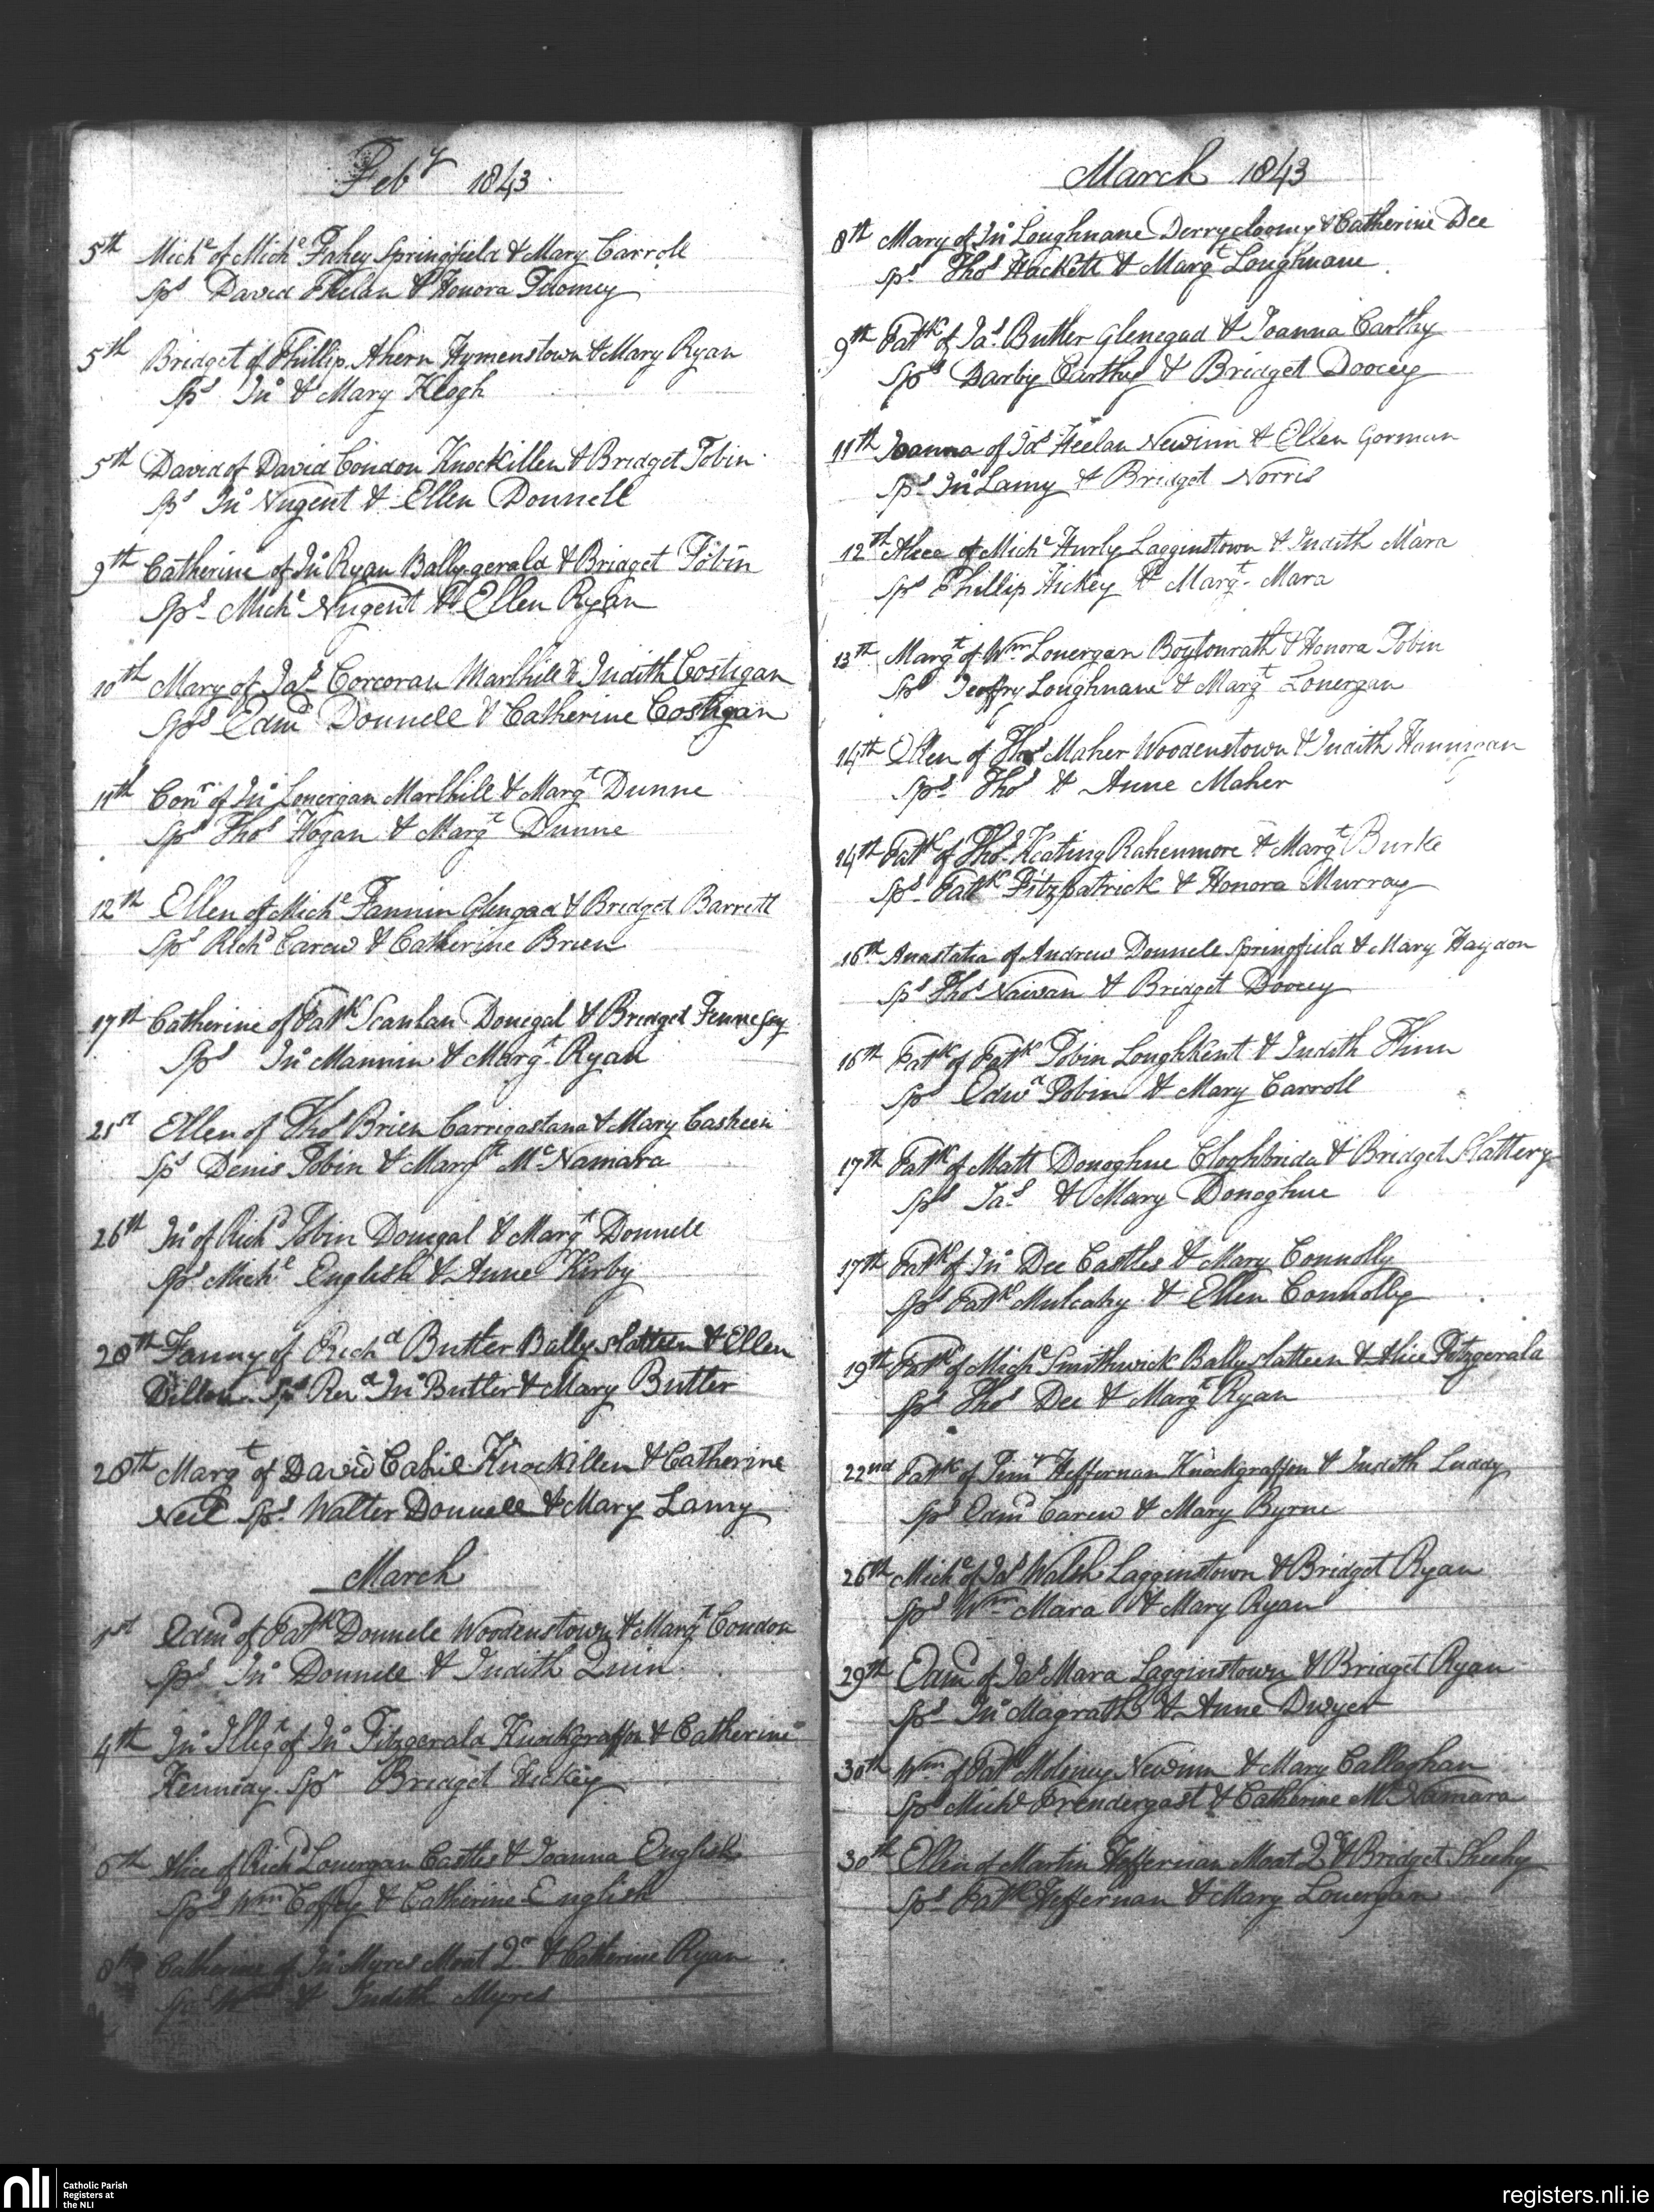 Feby 1843
5th Miche of Miche Fahey Springfield & Mary Carroll
Sps David Phelan & Honora Toomey
5th Bridget of Phillip Ahern Hymenstown & Mary Ryan
Sps Jno & Mary Klogh
5th David of David Condon Knockillen & Bridget Tobin
Sps Jno Nugent & Ellen Donnell
9th Catherine of Jno Ryan Ballygerald & Bridget Tobin
Sps Miche Nugent & Ellen Ryan
10th Mary of Jas Corcoran Marlhill & Judith Costigan
Sps Edmd Donnell & Catherine Costigan
11th Conr of Jno Lonergan Marlhill & Margt Dunne
Sps Thos Hogan & Margt Dunne
12th Ellen of Miche Fannin Glengad & Bridget Barrett
Sps Richd Carew & Catherine Brien
17th Catherine of Patk Scanlan Donegal & Bridget Fennesy
Sps Jno Mannin & Margt Ryan
21st Ellen of Thos Brien Carrigastana & Mary Casheen
Sps Denis Tobin & Margt McNamara
26th Jno of Richd Tobin Donegal & Margt Donnell
Sps Miche English & Anne Kirby
28th Fanny of Richd Butler Ballyslatteen & Ellen
Dillon Sps Revd Jno Butler & Mary Butler
28th Margt of David Cahil Knockillen & Catherine
Neil Sps Walter Donnell & Mary Lamy
March
1st Edmd of Patk Donnell Woodenstown & Margt Condon
Sps Jno Donnell & Judith Quin
4th Jno Illegt of Jno Fitzgerald Knockgraffon & Catherine
Kennedy. Spr Bridget Hickey
6th Alice of Richd Lonergan Castles & Joanna English
Sps Wm Coffey & Catherine English
8th Catherine of Jno Myres Moat Qr & Catherine Ryan
Sps Wm & Judith Myres
March 1843
8th Mary of Jno Loughnane Derryclooney & Catherine Dee
Sps Thos Hackett & Margt Loughnane
9th Patk of Jas Butler Glenegad & Joanna Carthy
Sps Darby Carthy & Bridget Doocey
11th Joanna of Jas Heelan Newinn & Ellen Gorman
Sps Jno Lamy & Bridget Norris
12th Alice of Miche Hurly Lagginstown & Judith Mara
Sps Phillip Hickey & Margt Mara
13th Margt of Wm Lonergan Boytonrath & Honora Tobin
Sps Jeoffry Loughnane & Margt Lonergan
14th Ellen of Thos Maher Woodenstown & Judith Hannigan
Sps Thos & Anne Maher
14th Patk of Thos Keating Rahenmore & Margt Burke
Sps Patk Fitzpatrick & Honora Murray
16th Anastatia of Andrew Donnell Springfield & Mary Haydon
Sps Thos Naivan & Bridget Doocey
16th Patk of Patk Tobin Loughkent & Judith Flinn
Sps Edwd Tobin & Mary Carroll
17th Patk of Matt Donoghue Cloghbrida & Bridget Slattery
Sps Jas & Mary Donoghue
17th Patk of Jno Dee Castles & Mary Connolly
Sps Patk Mulcahy & Ellen Connolly
19th Patk of Miche Smithwick Ballyslatteen & Alice Fitzgerald
Sps Thos Dee & Margt Ryan
22nd Patk of Timy Heffernan Knockgraffon & Judith Luddy
Sps Edmd Carew & Mary Byrne
26th Miche of Jas Walsh Lagginstown & Bridget Ryan
Sps Wm Mara & Mary Ryan
29th Edmd of Jas Mara Lagginstown & Bridget Ryan
Sps Jno Magrath & Anne Dwyer
30th Wm of Patk Moloney Newinn & Mary Callaghan
Sps Michl Prendergast & Catherine McNamara
30th Ellen of Martin Heffernan Moat Qr & Bridget Sheehy
Sps Patk Heffernan & Mary Lonergan
nli
Catholic Parish
Registers at
the NLI
registers.nli.ie